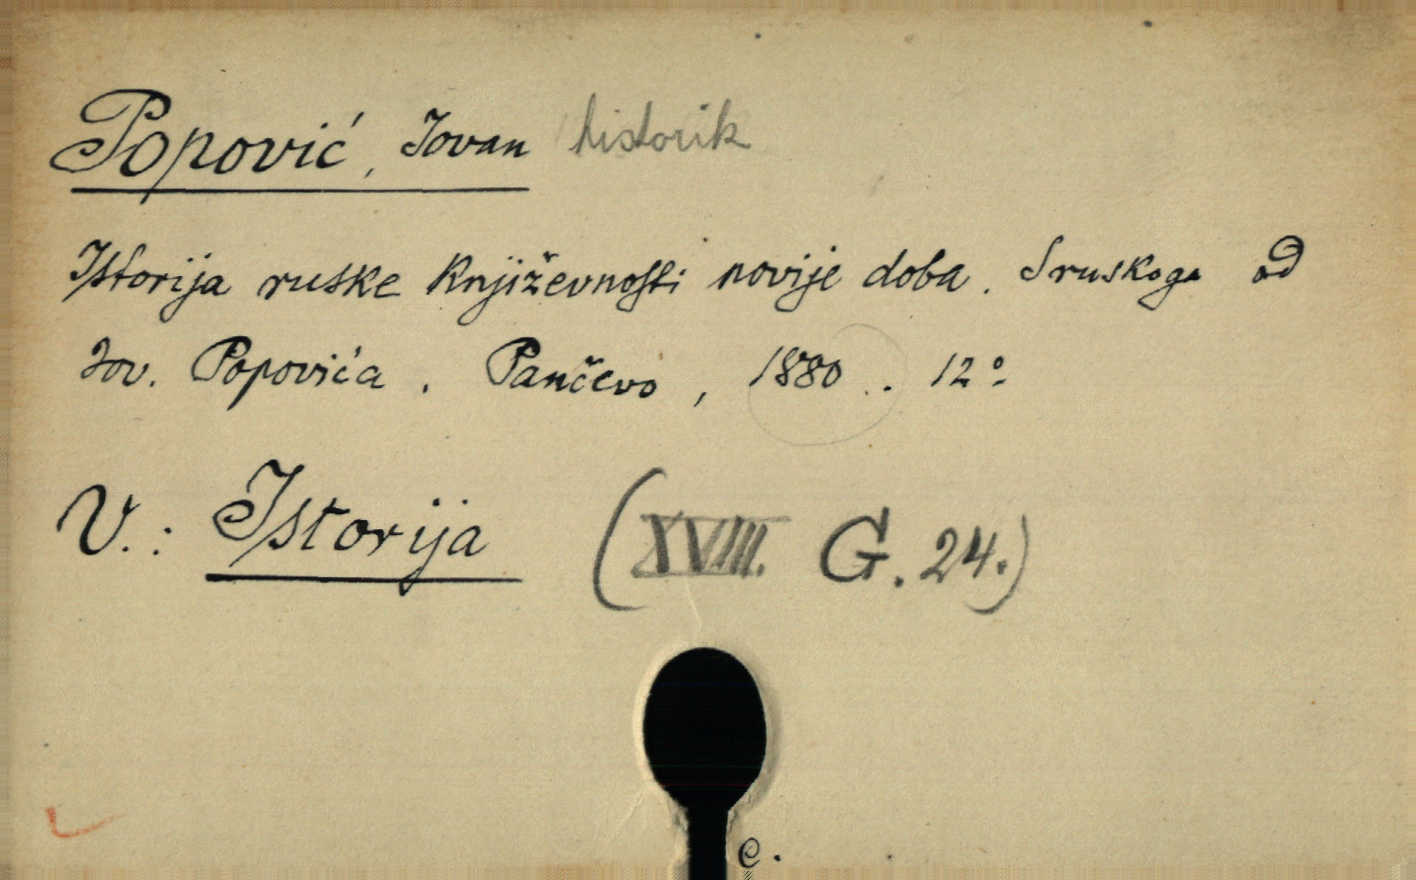 Popović, Jovan historik
Istorija ruske Književnosti novije doba. S ruskoga od
Jov. Popovića. Pančevo, 1880. 12º
V.: Istorija (XVIII. G. 24.)
e.